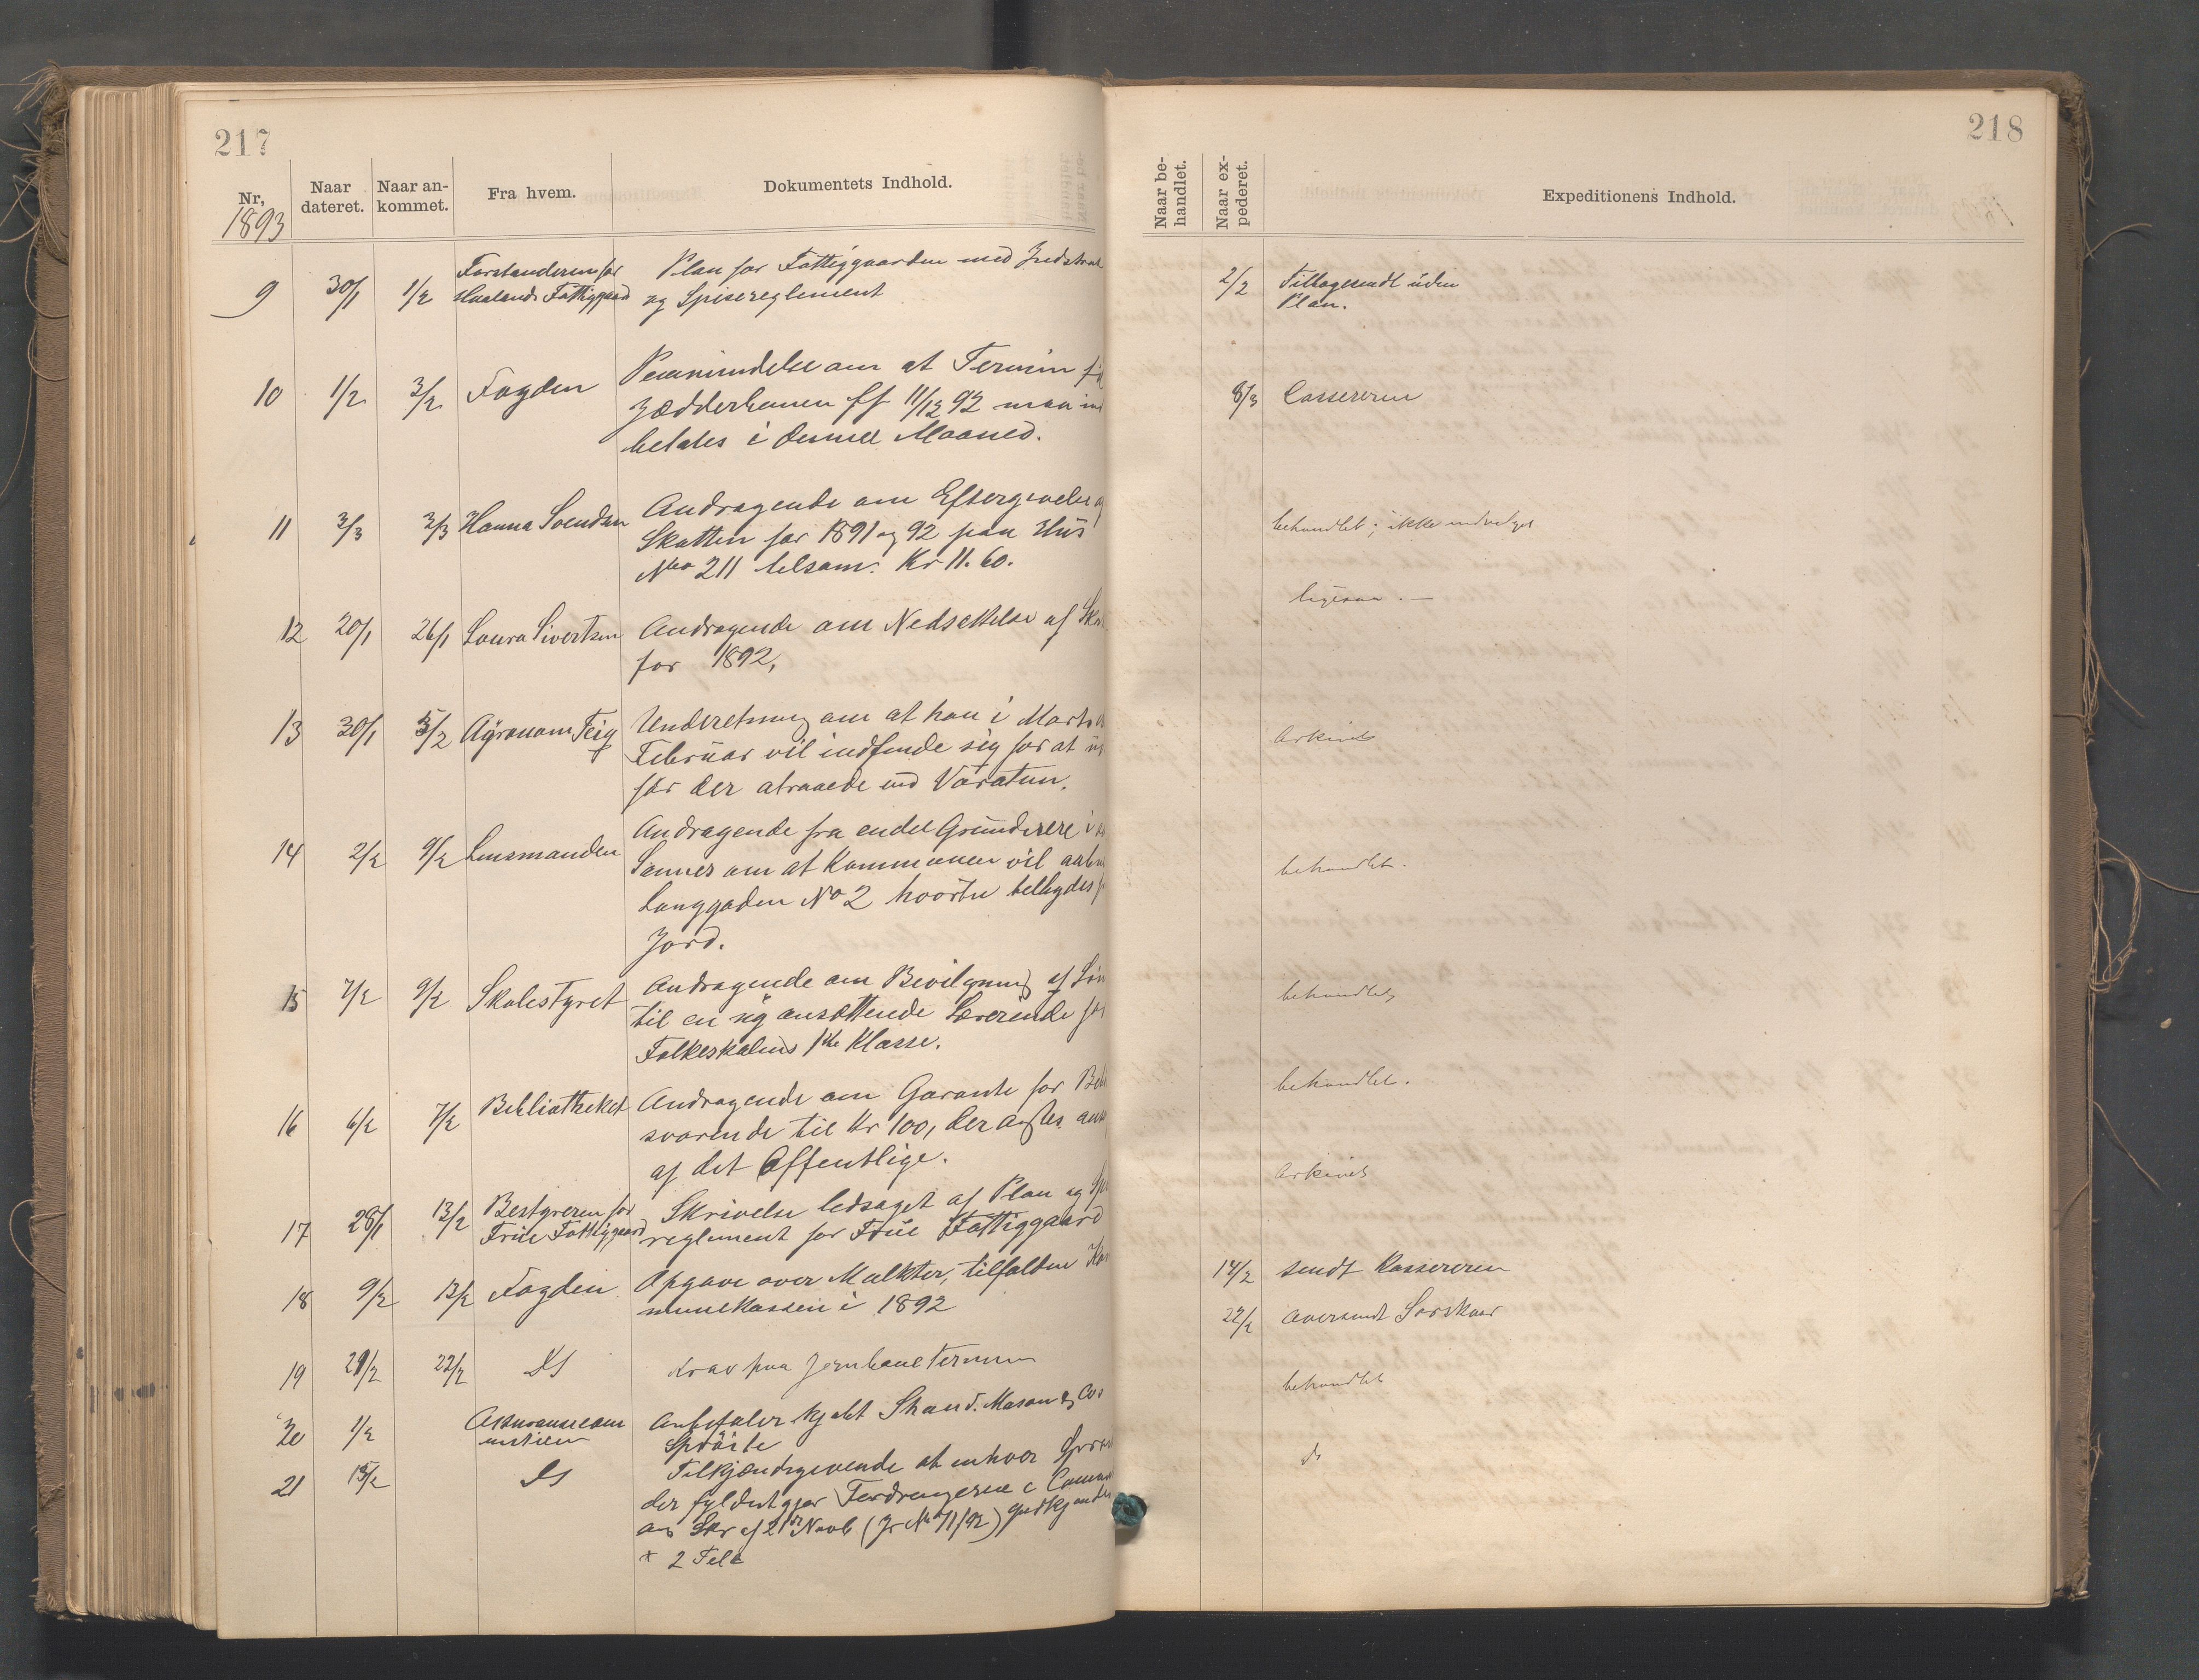 217
Nr,
1893
Naar dateret.
Naar ankommet.
Fra hvem.
Dokumentets Indhold.
9 30/1 1/2 Forstanderen for Hualands Fattiggaard
Plan for Fattiggaarden med
og Spisereglement
10 1/2 3/2 Fogden
Paamindelse om at Termin
Jædderbanen ff 11/12 92 maa
betales i denne Maaned.
11 3/3 3/3 Hanna Svendsen
Andragende om Eftergivelse
Skatten for 1891 og 92 paa Hus
No 211 tilsam. Kr 11.60.
12 20/1 26/1 Laura Sivertsen
Andragende om Nedsættelse af
for 1892,
13 30/1 3/2 Agronom Feig
Underetning om at han i Marts
Februar vil indfinde sig for at
før der atraaede
14 2/2 9/2 Lensmanden
Andragende fra endel Grundeiere i
Sannes om at Kommunen vil
Langgaden No 2 hvortil tilbydes
Jord.
15 7/2 9/2 Skolestyret
Andragende om Bevilgning af
til en ny ansættende Lærerinde for
Folkeskolens 1ste Klasse.
16 6/2 7/2 Bibliotheket
Andragende om Garante for
svarende til Kr 100, der
af det Offentlige.
17 28/1 13/2 Bestyreren for Frue Fattiggaard
Skrivelse ledsaget af Plan og
reglement for Frue Fattiggaard
18 9/2 13/2 Fogden
Opgave over Mulkter, tilfalden
munekassen i 1892
19 21/2 22/2 Ds
Krav paa Jernbane Termin
20 1/2
Anbefaler kjøbt Skand. Mason &
Sprøite
21 15/2 Ds
Tilkjendegivende at enhver
der fyldestgjør Fordringerne i
Skr af 21de Novb (Jr No 71/92) godkjendes
218
Naar behandlet.
Naar expederet.
Expeditionens Indhold.
2/2 Tilbagesendt uden
Plan.
8/3 Cassereren
behandlet; ikke
ligesaa. —
Arkivet
behandlet.
behandlet,
behandlet.
Arkivet
14/2 sendt Kassereren
22/2 oversendt
behandlet
ds